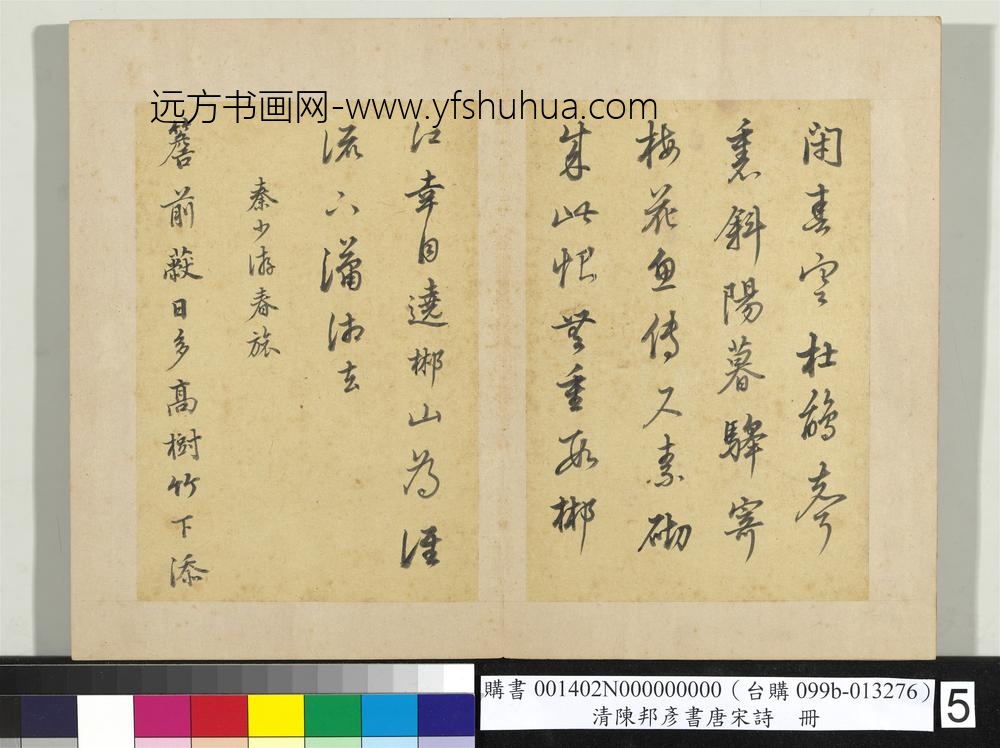 远方书画网-www.yfshuhua.com
閉春寒杜鵑聲
裏斜陽暮驛寄
梅花魚傳尺素砌
成此恨無重數郴
江幸自遶郴山為誰
流下瀟湘去
秦少游春旅
簷前蔽日多高樹竹下添
購書 001402N000000000（台購 099b-013276）
清陳邦彥書唐宋詩 冊
5